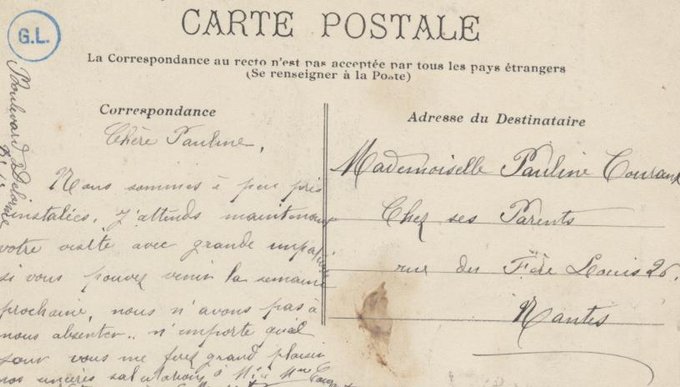 G.L.
CARTE POSTALE
La Correspondance au recto n'est pas acceptée par tous les pays étrangers
(Se renseigner à la Poste)
Correspondance
Chère Pauline,
Nous sommes à peu près
installées, J'attends maintenant
votre visite avec grande impatience
si vous pouvez venir la semaine
prochaine, nous n'avons pas à
nous absenter.. n'importe quel
jour vous me ferez grand plaisir
nos sincères salutations à Mr & Mme
Boulevard Delorme
Adresse du Destinataire
Mademoiselle Pauline
Chez ses Parents
rue du Fère Louis 26.
Nantes